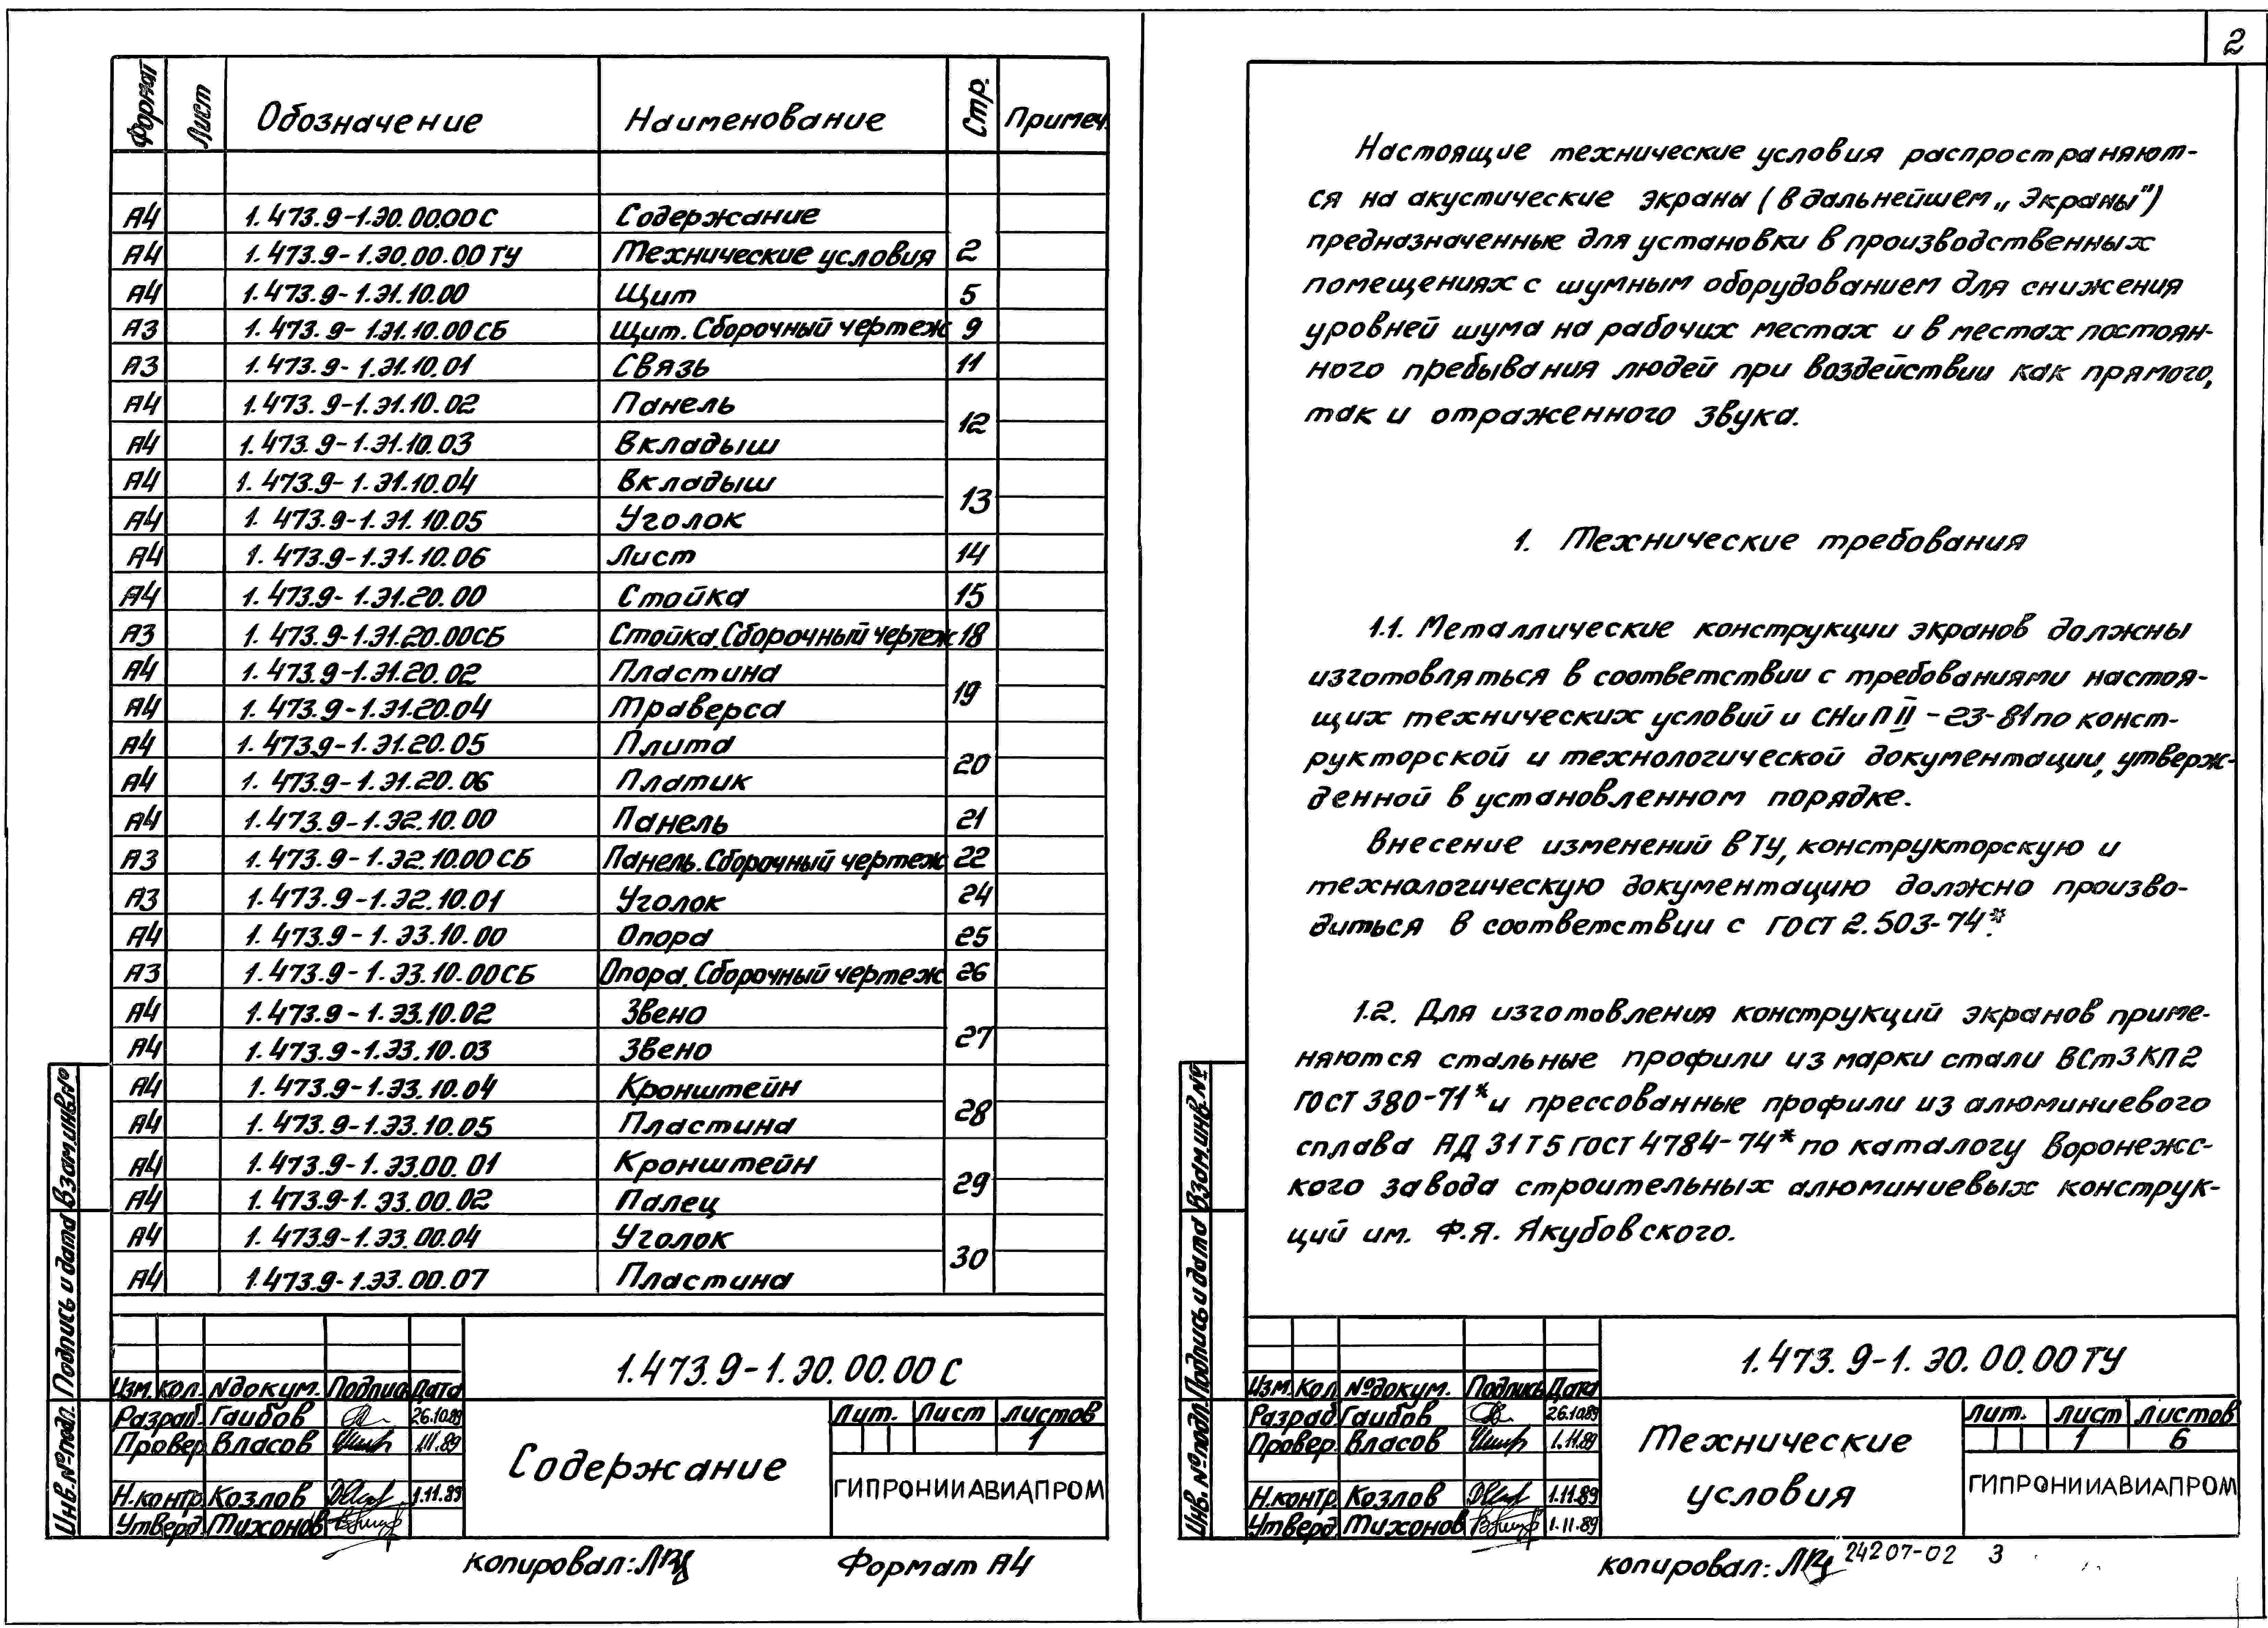 Формат Лист Обозначение Наименование Стр. Примеч.
А4 1.473.9-1.Э0.00.00 С Содержание
А4 1.473.9-1.Э0.00.00 ТУ Технические условия 2
А4 1.473.9-1.Э1.10.00 Щит 5
А3 1.473.9-1.Э1.10.00 СБ Щит. Сборочный чертеж 9
А3 1.473.9-1.Э1.10.01 Связь 11
А4 1.473.9-1.Э1.10.02 Панель 12
А4 1.473.9-1.Э1.10.03 Вкладыш
А4 1.473.9-1.Э1.10.04 Вкладыш 13
А4 1.473.9-1.Э1.10.05 Уголок
А4 1.473.9-1.Э1.10.06 Лист 14
А4 1.473.9-1.Э1.20.00 Стойка 15
А3 1.473.9-1.Э1.20.00СБ Стойка.Сборочный чертеж 18
А4 1.473.9-1.Э1.20.02 Пластина 19
А4 1.473.9-1.Э1.20.04 Траверса
А4 1.473.9-1.Э1.20.05 Плита 20
А4 1.473.9-1.Э1.20.06 Платик
А4 1.473.9-1.Э2.10.00 Панель 21
А3 1.473.9-1.Э2.10.00 СБ Панель.Сборочный чертеж 22
А3 1.473.9-1.Э2.10.01 Уголок 24
А4 1.473.9-1.Э3.10.00 Опора 25
А3 1.473.9-1.Э3.10.00СБ Опора.Сборочный чертеж 26
А4 1.473.9-1.Э3.10.02 Звено 27
А4 1.473.9-1.Э3.10.03 Звено
А4 1.473.9-1.Э3.10.04 Кронштейн 28
А4 1.473.9-1.Э3.10.05 Пластина
А4 1.473.9-1.Э3.00.01 Кронштейн 29
А4 1.473.9-1.Э3.00.02 Палец
А4 1.473.9-1.Э3.00.04 Уголок 30
А4 1.473.9-1.Э3.00.07 Пластина
Взам.инв.№
Подпись и дата
Инв.№подл.
1.473.9-1.Э0.00.00 С
Изм. Кол. Nдокум. Подпис Дата
Разраб. Гаибов 26.10.89
Провер. Власов 1.11.89
Н.контр. Козлов 1.11.89
Утверд. Тихонов
Содержание
Лит. Лист Листов
1
ГИПРОНИИАВИАПРОМ
копировал: Формат А4
2
Настоящие технические условия распространяют-
ся на акустические экраны (в дальнейшем „Экраны")
предназначенные для установки в производственных
помещениях с шумным оборудованием для снижения
уровней шума на рабочих местах и в местах постоян-
ного пребывания людей при воздействии как прямого,
так и отраженного звука.
1. Технические требования
1.1. Металлические конструкции экранов должны
изготовляться в соответствии с требованиями настоя-
щих технических условий и СНиП II-23-81 по конст-
рукторской и технологической документации, утверж-
денной в установленном порядке.
Внесение изменений в ТУ, конструкторскую и
технологическую документацию должно произво-
диться в соответствии с ГОСТ 2.503-74*.
1.2. Для изготовления конструкций экранов приме-
няются стальные профили из марки стали ВСт3КП2
ГОСТ 380-71* и прессованные профили из алюминиевого
сплава АД 31Т5 ГОСТ 4784-74* по каталогу Воронежс-
кого завода строительных алюминиевых конструк-
ций им. Ф.Я. Якубовского.
Взам.инв.№
Подпись и дата
Инв.№подл.
1.473.9-1.Э0.00.00 ТУ
Изм. Кол №докум. Подпись Дата
Разраб Гаибов 26.10.89
Провер. Власов 1.11.89
Н.контр. Козлов 1.11.89
Утверд. Тихонов 1.11.89
Технические
условия
Лит. Лист Листов
1 6
ГИПРОНИИАВИАПРОМ
копировал: 24207-02 3